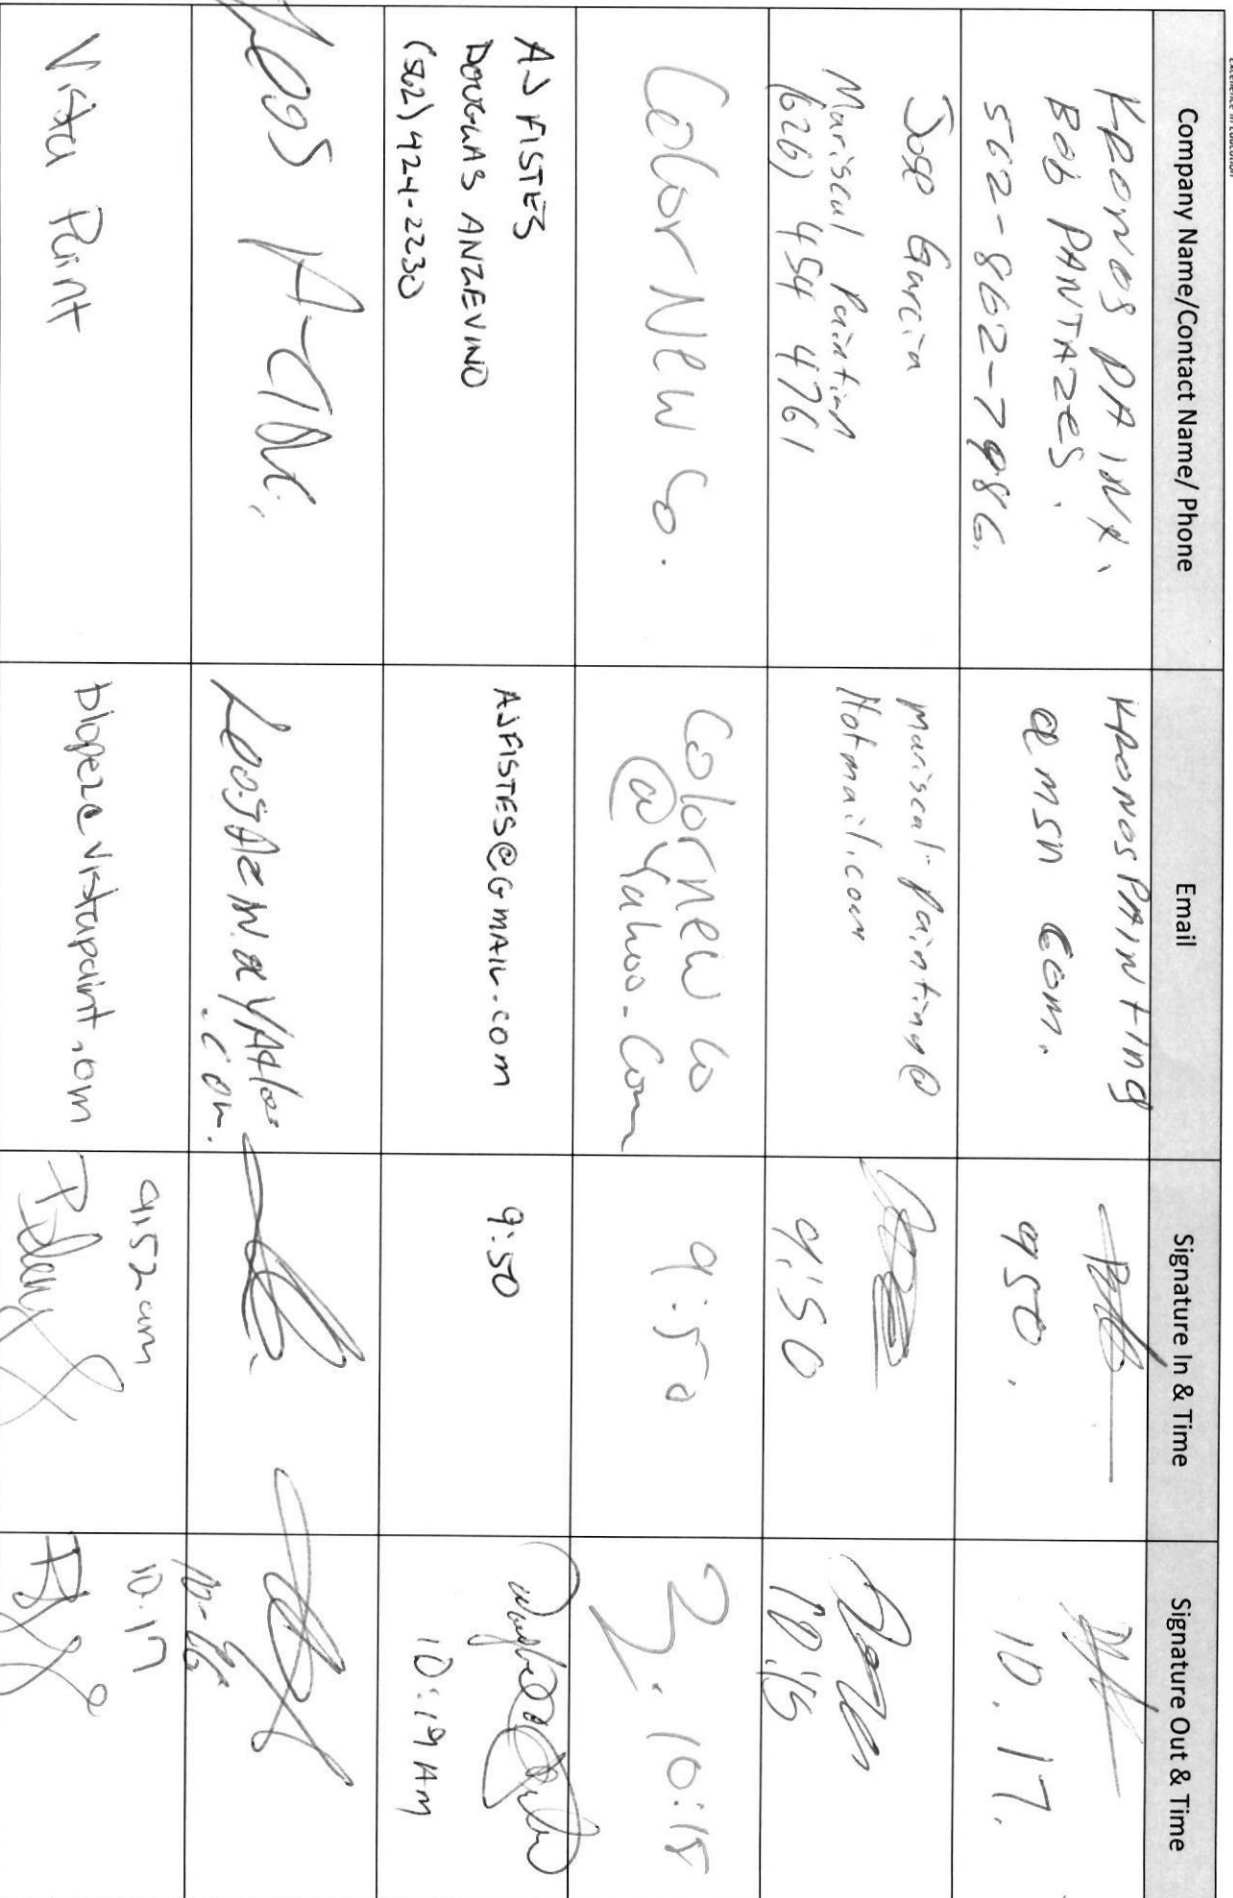 EXCELLENCE IN EDUCATION
Company Name/Contact Name/ Phone
Email
Signature In & Time
Signature Out & Time
KRONOS PAINX.
BOB PANTAZES.
562-862-7986.
KRONOSPAINting
@msn com.
950.
10.17.
Jose Garcia
Mariscal Painting
(626) 454 4761
mariscal-painting@
Hotmail.com
9:50
10:15
Color New Co.
Colornewco
@yahoo.com
9:50
10:18
AJ FISTES
DOUGLAS ANZEVINO
(562) 424-2230
AJFISTES@GMAIL.COM
9:50
10:19 AM
.com.
Vista Paint
Dlopez@vistapaint.com
9:52am
10:17